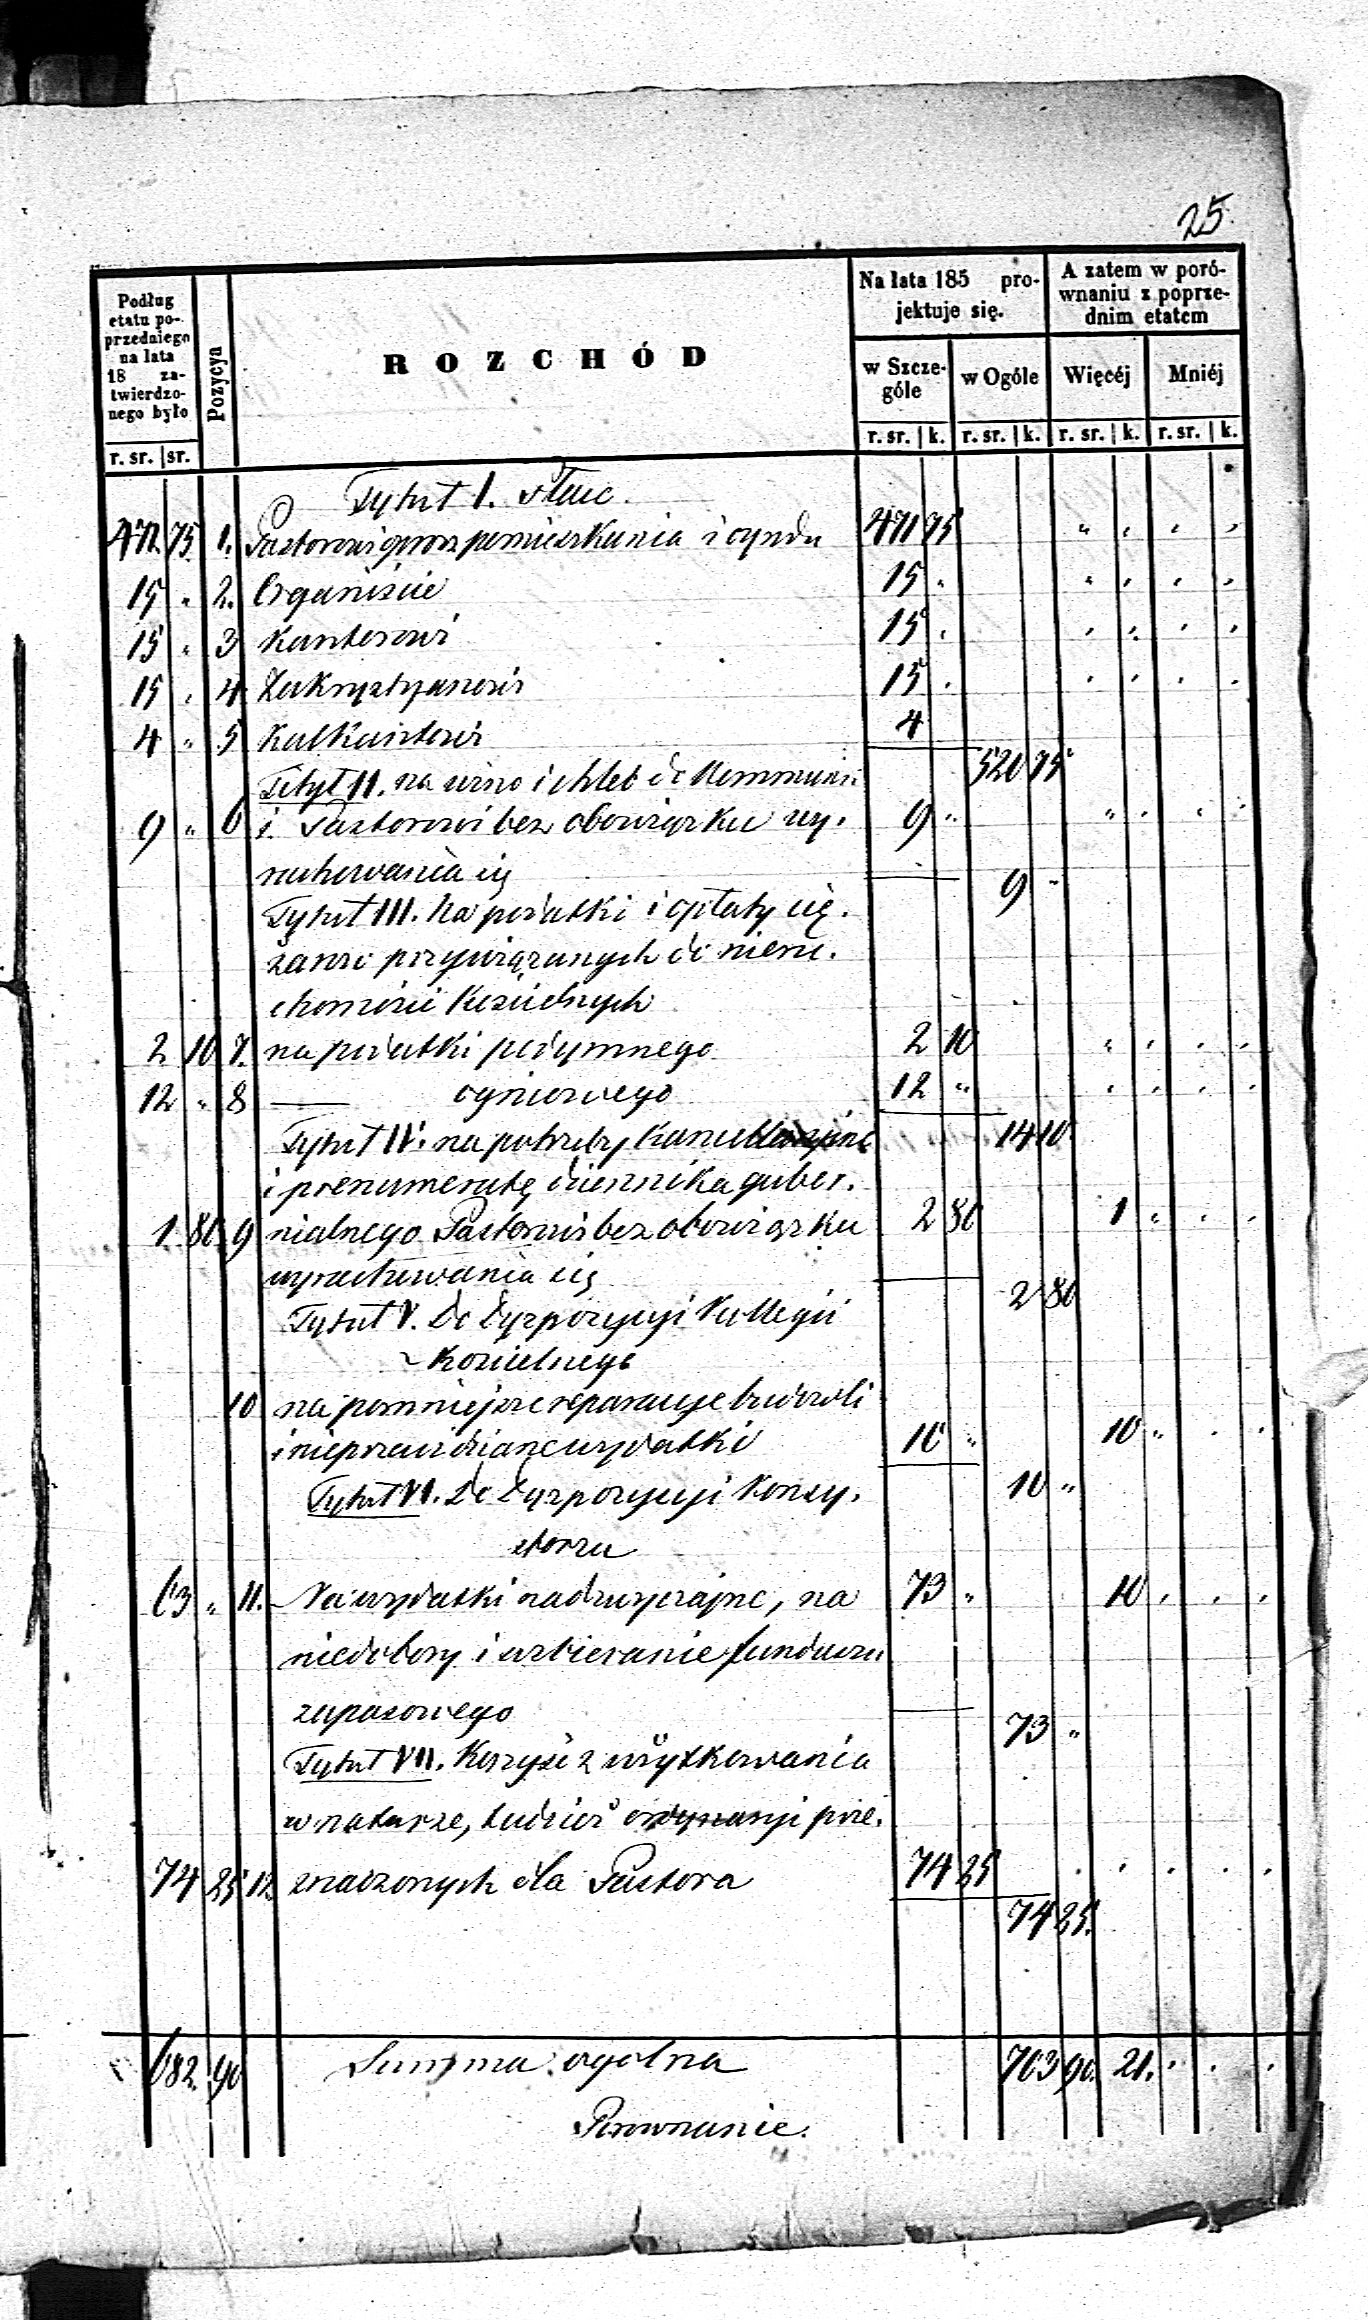 25.
Podług etatu poprzedniego na lata 18 zatwierdzonego było
Pozycya
ROZCHÓD
Na lata 185 projektuje się.
A zatem w porównaniu z poprzednim etatem
w Szczególe
w Ogóle
Więcéj
Mniéj
r. sr. | sr.
r. sr. | k. r. sr. | k. r. sr. | k. r. sr. | k.
Tytuł I. Płace.
75 1. Pastorowi oprocz pomieszkania i 75 " " " "
15 " 2. Organiście 15 " " " " "
15 " 3 Kantorowi 15 " " " " "
15 " 4 Zakrystyanowi 15 " " " " "
4 " 5 Kalkantowi 4
520 75
Tytuł II. na wino i chleb do Kommunii
9 " 6 i. Pastorowi bez obowiązku wy- 9 " " " " "
rachowania się
9 "
Tytuł III. Na podatki i opłaty cię-
żarów przywiązanych do nieru-
chomości Kościelnych
2 10 7. na podatki podymnego 2 10 " " " "
12 " 8 — ogniowego 12 " " " " "
14 10
Tytuł IV. na potrzeby
i prenumeratę dziennika guber-
1 80 9 nialnego Pastorowi bez obowiązku 2 80 1 " " "
wyrachowania się
2 80
Tytuł V. Do Dyspozycyi Kollegii
Kościelnego
10 na pomniejsze reparacye budowli
i nieprzewidziane wydatki 10 " 10 " " "
Tytuł VI. Do Dyspozycyi Konsy-
10 "
storza
63 " 11. Na wydatki nadzwyczajne, na 73 " 10 " " "
niedobory i uzbieranie funduszu
zapasowego
73 "
Tytuł VII. Korzyści z użytkowania
w naturze, tudzież ordynaryi prze-
74 25 12. znaczonych dla Pastora 74 25 " " " "
74 25.
682. 90 Summa ogolna 703 90. 21. " " "
Porownanie.